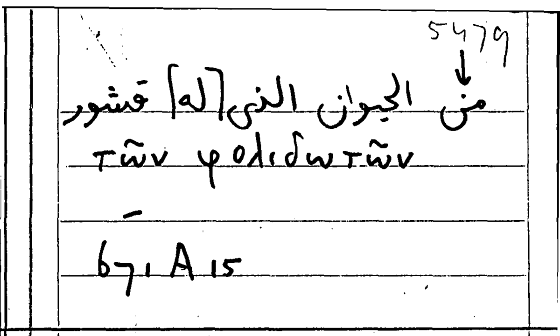 5479
من الحيوان الذى [له] قشور
τῶν φολιδωτῶν
671 A 15